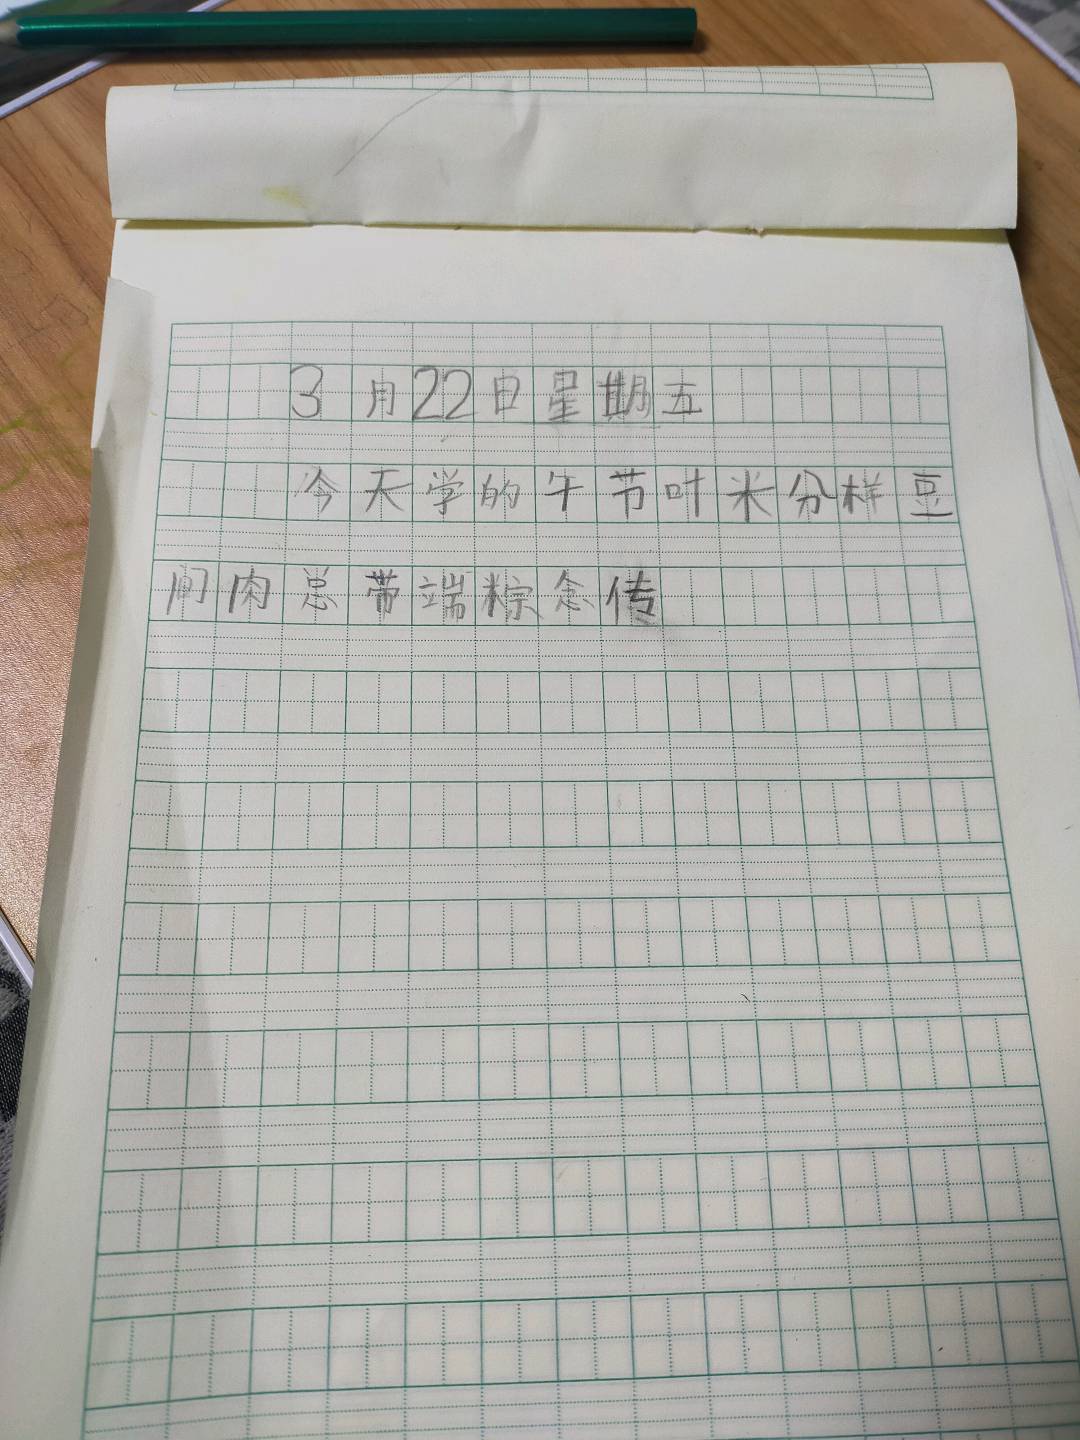 3月22日星期五
今天学的午节叶米分样豆
间肉总带端粽念传